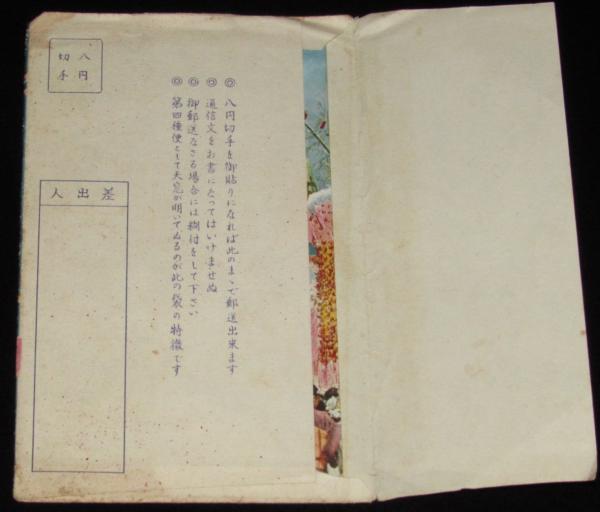 八円
切手
◎ 八円切手を御貼りになれば此のまゝで郵送出来ます
◎ 通信文をお書になってはいけませぬ
◎ 御郵送なさる場合には糊付をして下さい
◎ 第四種便として天窓が明いてゐるのが此の袋の特徴です
差出人